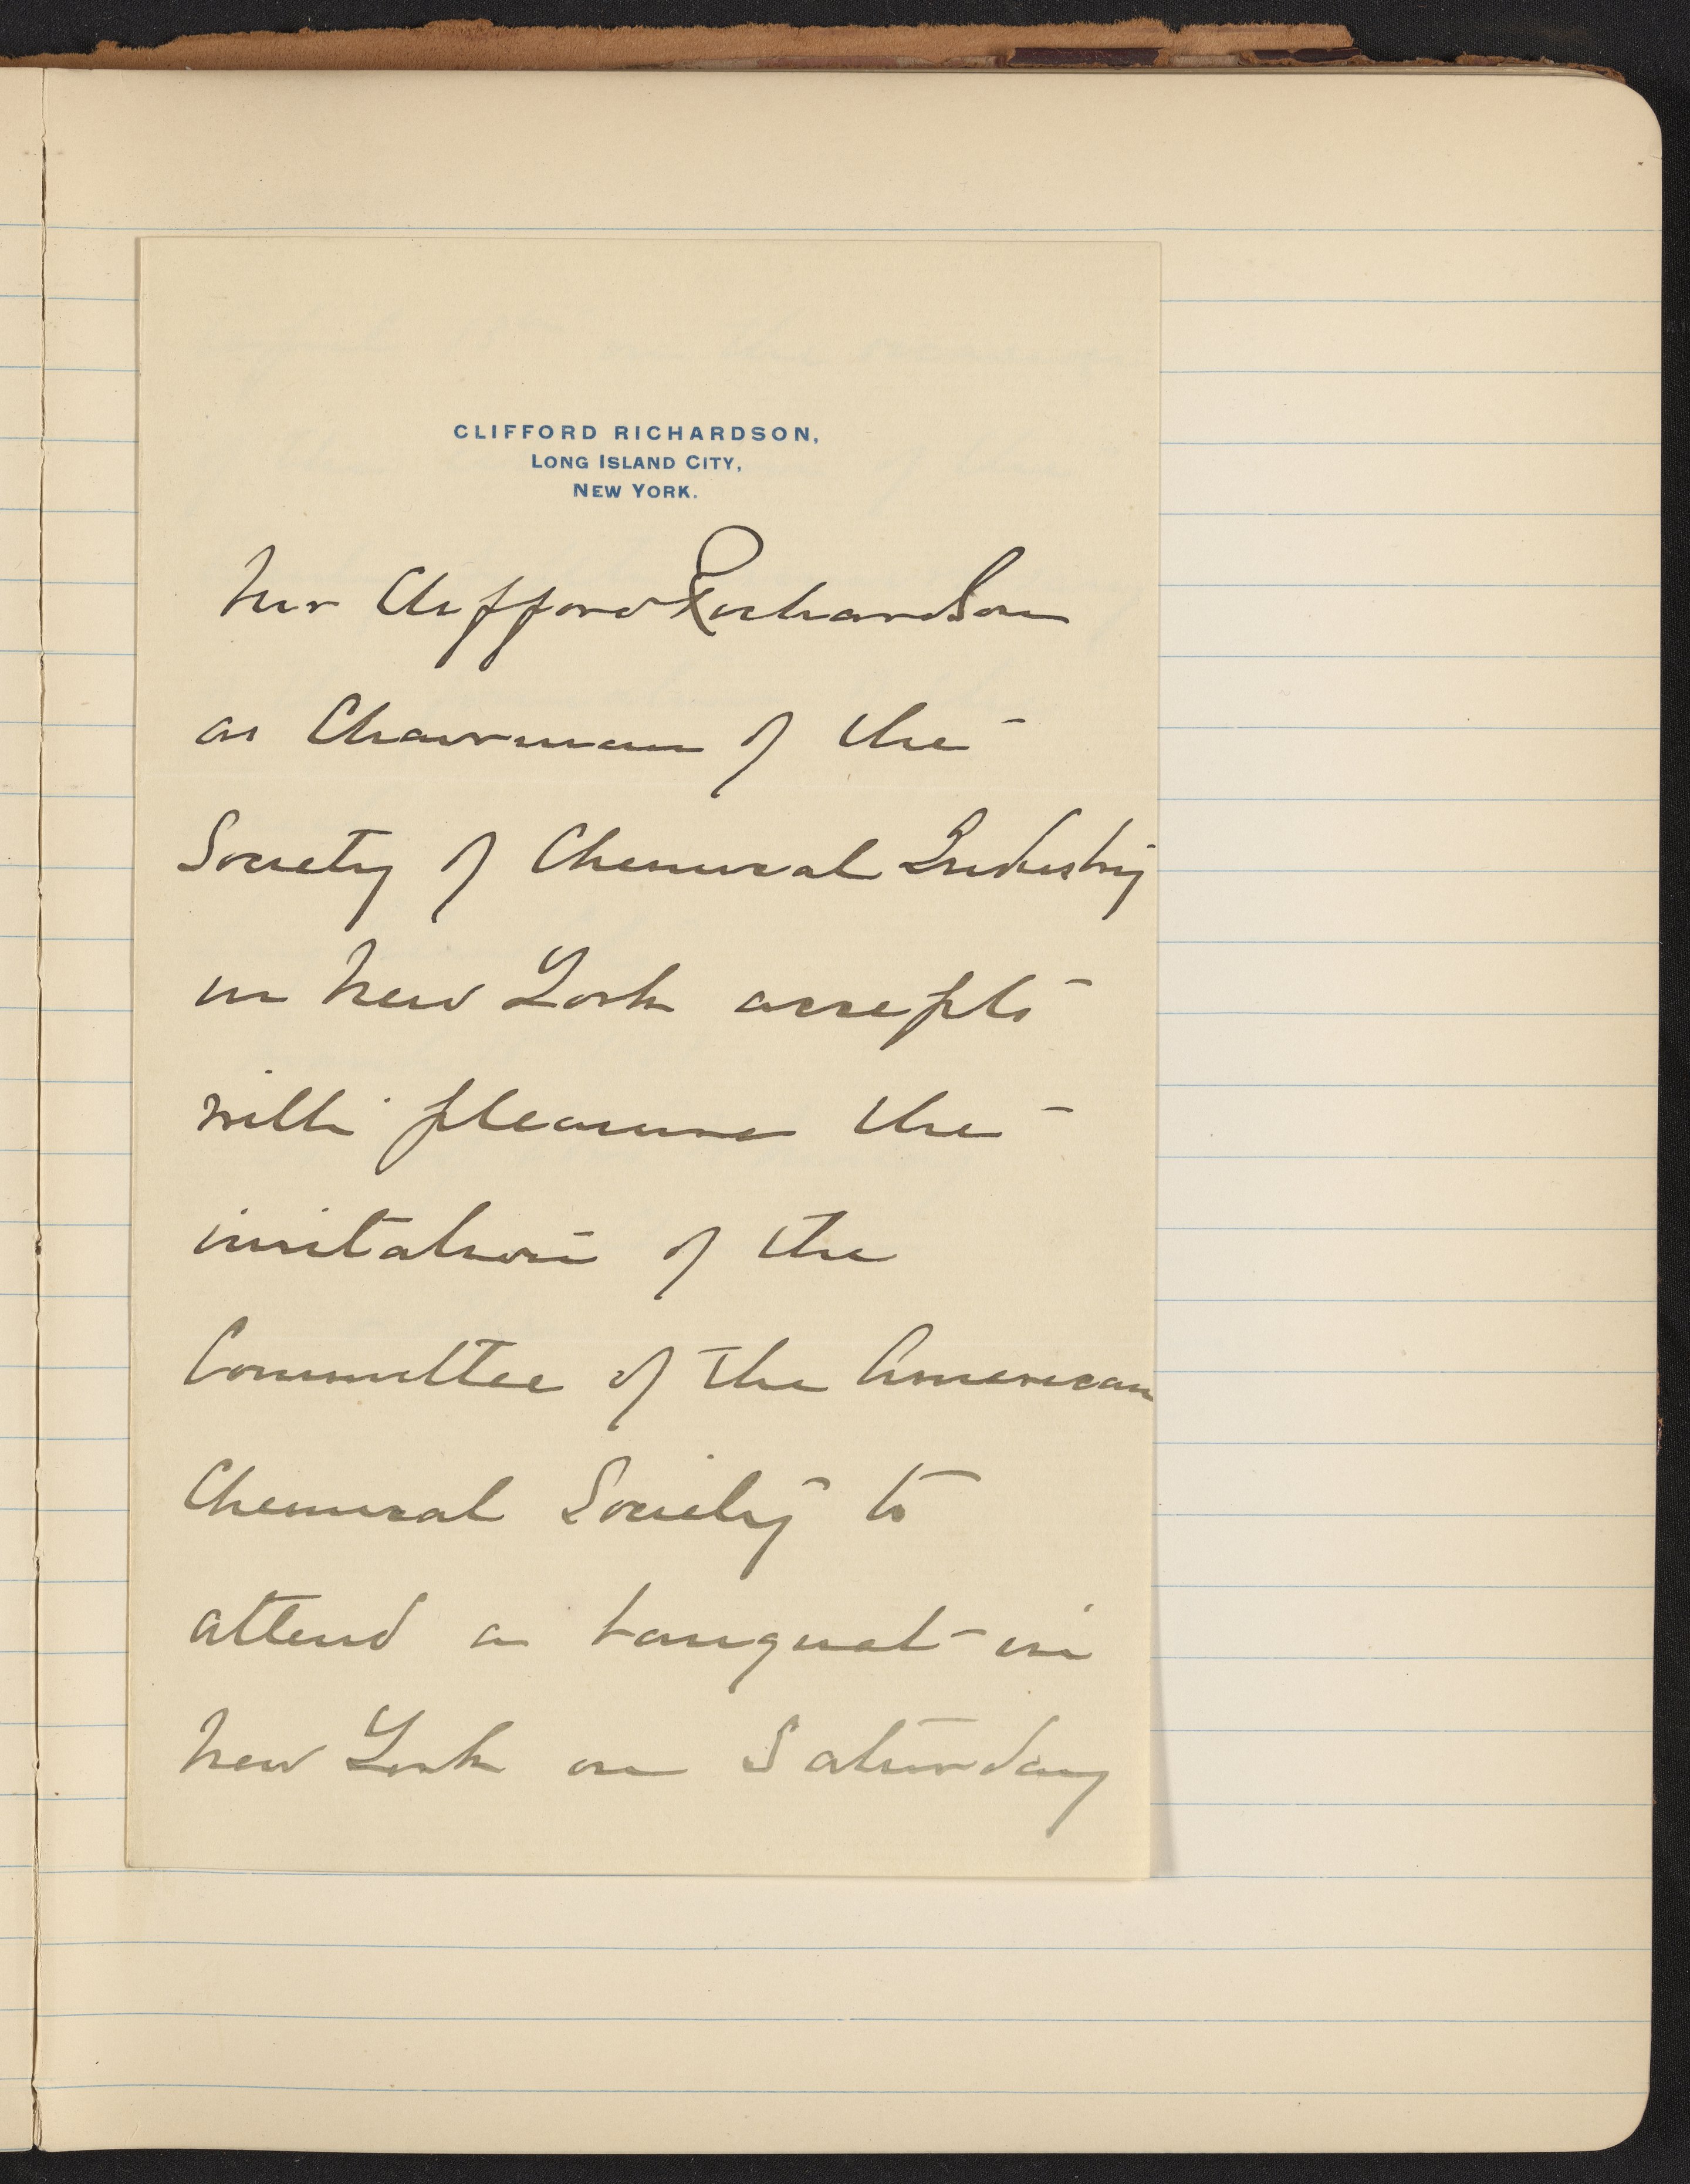 CLIFFORD RICHARDSON,
LONG ISLAND CITY,
NEW YORK.
Mr Clifford Richardson
as Chairman of the
Society of Chemical Industry
in New York accepts
with pleasure the
invitation of the
Committee of the American
Chemical Society to
attend a banquet in
New York on Saturday